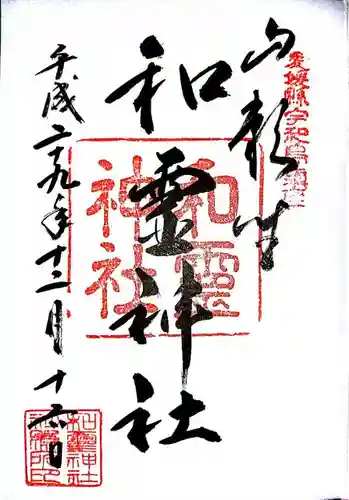 愛媛縣宇和島鎮座
山頼
和霊神社
和霊神社
平成二十九年十二月十六日
和霊神社